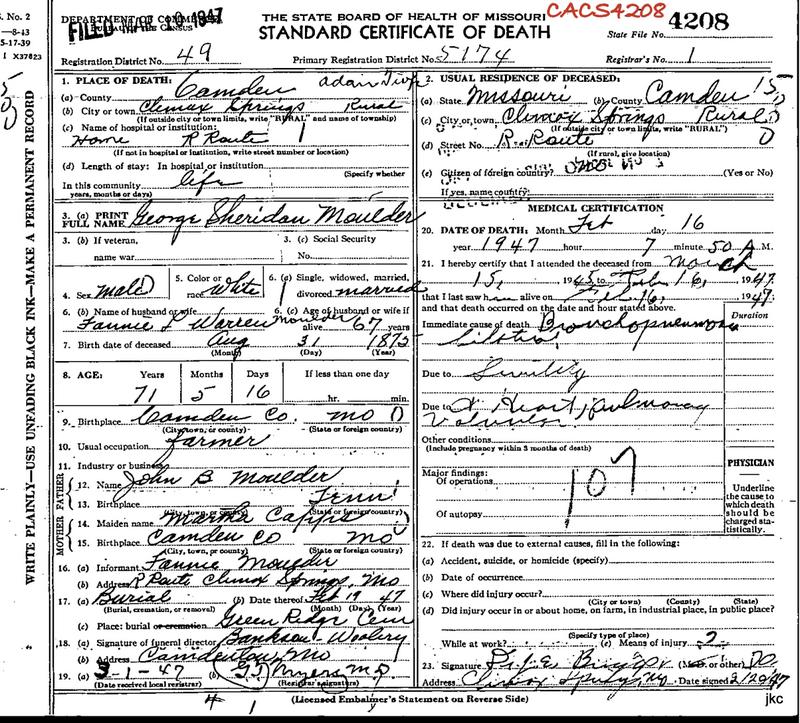 S. No. 2
-8-43
5-17-39
I X37823
WRITE PLAINLY—USE UNFADING BLACK INK—MAKE A PERMANENT RECORD
DEPARTMENT OF COMMERCE
BUREAU OF THE CENSUS
FILED MAR 20 1947
THE STATE BOARD OF HEALTH OF MISSOURI
CACS4208
STANDARD CERTIFICATE OF DEATH
State File No. 4208
Registration District No. 49
Primary Registration District No. 5174
Registrar's No. 1
1. PLACE OF DEATH:
(a) County Camden
(b) City or town Climax Springs Rural
(If outside city or town limits, write "RURAL" and name of township)
(c) Name of hospital or institution:
Home R Route
(If not in hospital or institution, write street number or location)
(d) Length of stay: In hospital or institution
(Specify whether
In this community life
years, months or days)
2. USUAL RESIDENCE OF DECEASED:
(a) State Missouri (b) County Camden 15
(c) City or town Climax Springs Rural
(If outside city or town limits, write "RURAL")
(d) Street No. R. Route
(If rural, give location)
(e) Citizen of foreign country? (Yes or No)
If yes, name country:
3. (a) PRINT FULL NAME George Sheridan Moulder
3. (b) If veteran, name war
3. (c) Social Security No.
4. Sex Male
5. Color or race White
6. (a) Single, widowed, married, divorced married
6. (b) Name of husband or wife
Fannie L Warren Moulder
6. (c) Age of husband or wife if alive 67 years
7. Birth date of deceased Aug 31 1875
(Month) (Day) (Year)
8. AGE: Years Months Days If less than one day
71 5 16 hr. min.
9. Birthplace Camden Co. Mo
(City, town, or county) (State or foreign country)
10. Usual occupation farmer
11. Industry or business
FATHER
12. Name John B Moulder
13. Birthplace Tenn
(City, town, or county) (State or foreign country)
MOTHER
14. Maiden name Martha Capps
15. Birthplace Camden Co Mo
(City, town, or county) (State or foreign country)
16. (a) Informant Fannie Moulder
(b) Address R Route Climax Springs, Mo
17. (a) Burial (b) Date thereof Feb 19 47
(Burial, cremation, or removal) (Month) (Day) (Year)
(c) Place: burial or cremation Green Ridge Cem
18. (a) Signature of funeral director Bankson Woolery
(b) Address Camdenton, Mo
19. (a) 3-1-47 (b) Myers M.D.
(Date received local registrar) (Registrar's signature)
MEDICAL CERTIFICATION
20. DATE OF DEATH: Month Feb day 16
year 1947 hour 7 minute 50 A M.
21. I hereby certify that I attended the deceased from March
15, 1945 to Feb 16, 1947
that I last saw h alive on Feb 16, 1947
and that death occurred on the date and hour stated above.
Duration
Immediate cause of death Bronchopneumonia
Due to Senility
Due to Heart, pulmonary
Other conditions
(Include pregnancy within 3 months of death)
Major findings:
Of operations
Of autopsy
107
PHYSICIAN
Underline the cause to which death should be charged statistically.
22. If death was due to external causes, fill in the following:
(a) Accident, suicide, or homicide (specify)
(b) Date of occurrence
(c) Where did injury occur?
(City or town) (County) (State)
(d) Did injury occur in or about home, on farm, in industrial place, in public place?
(Specify type of place)
While at work? (e) Means of injury 2
23. Signature (M.D. or other) DO
Address Climax Springs, Mo Date signed 3/20/47
(Licensed Embalmer's Statement on Reverse Side)
jkc